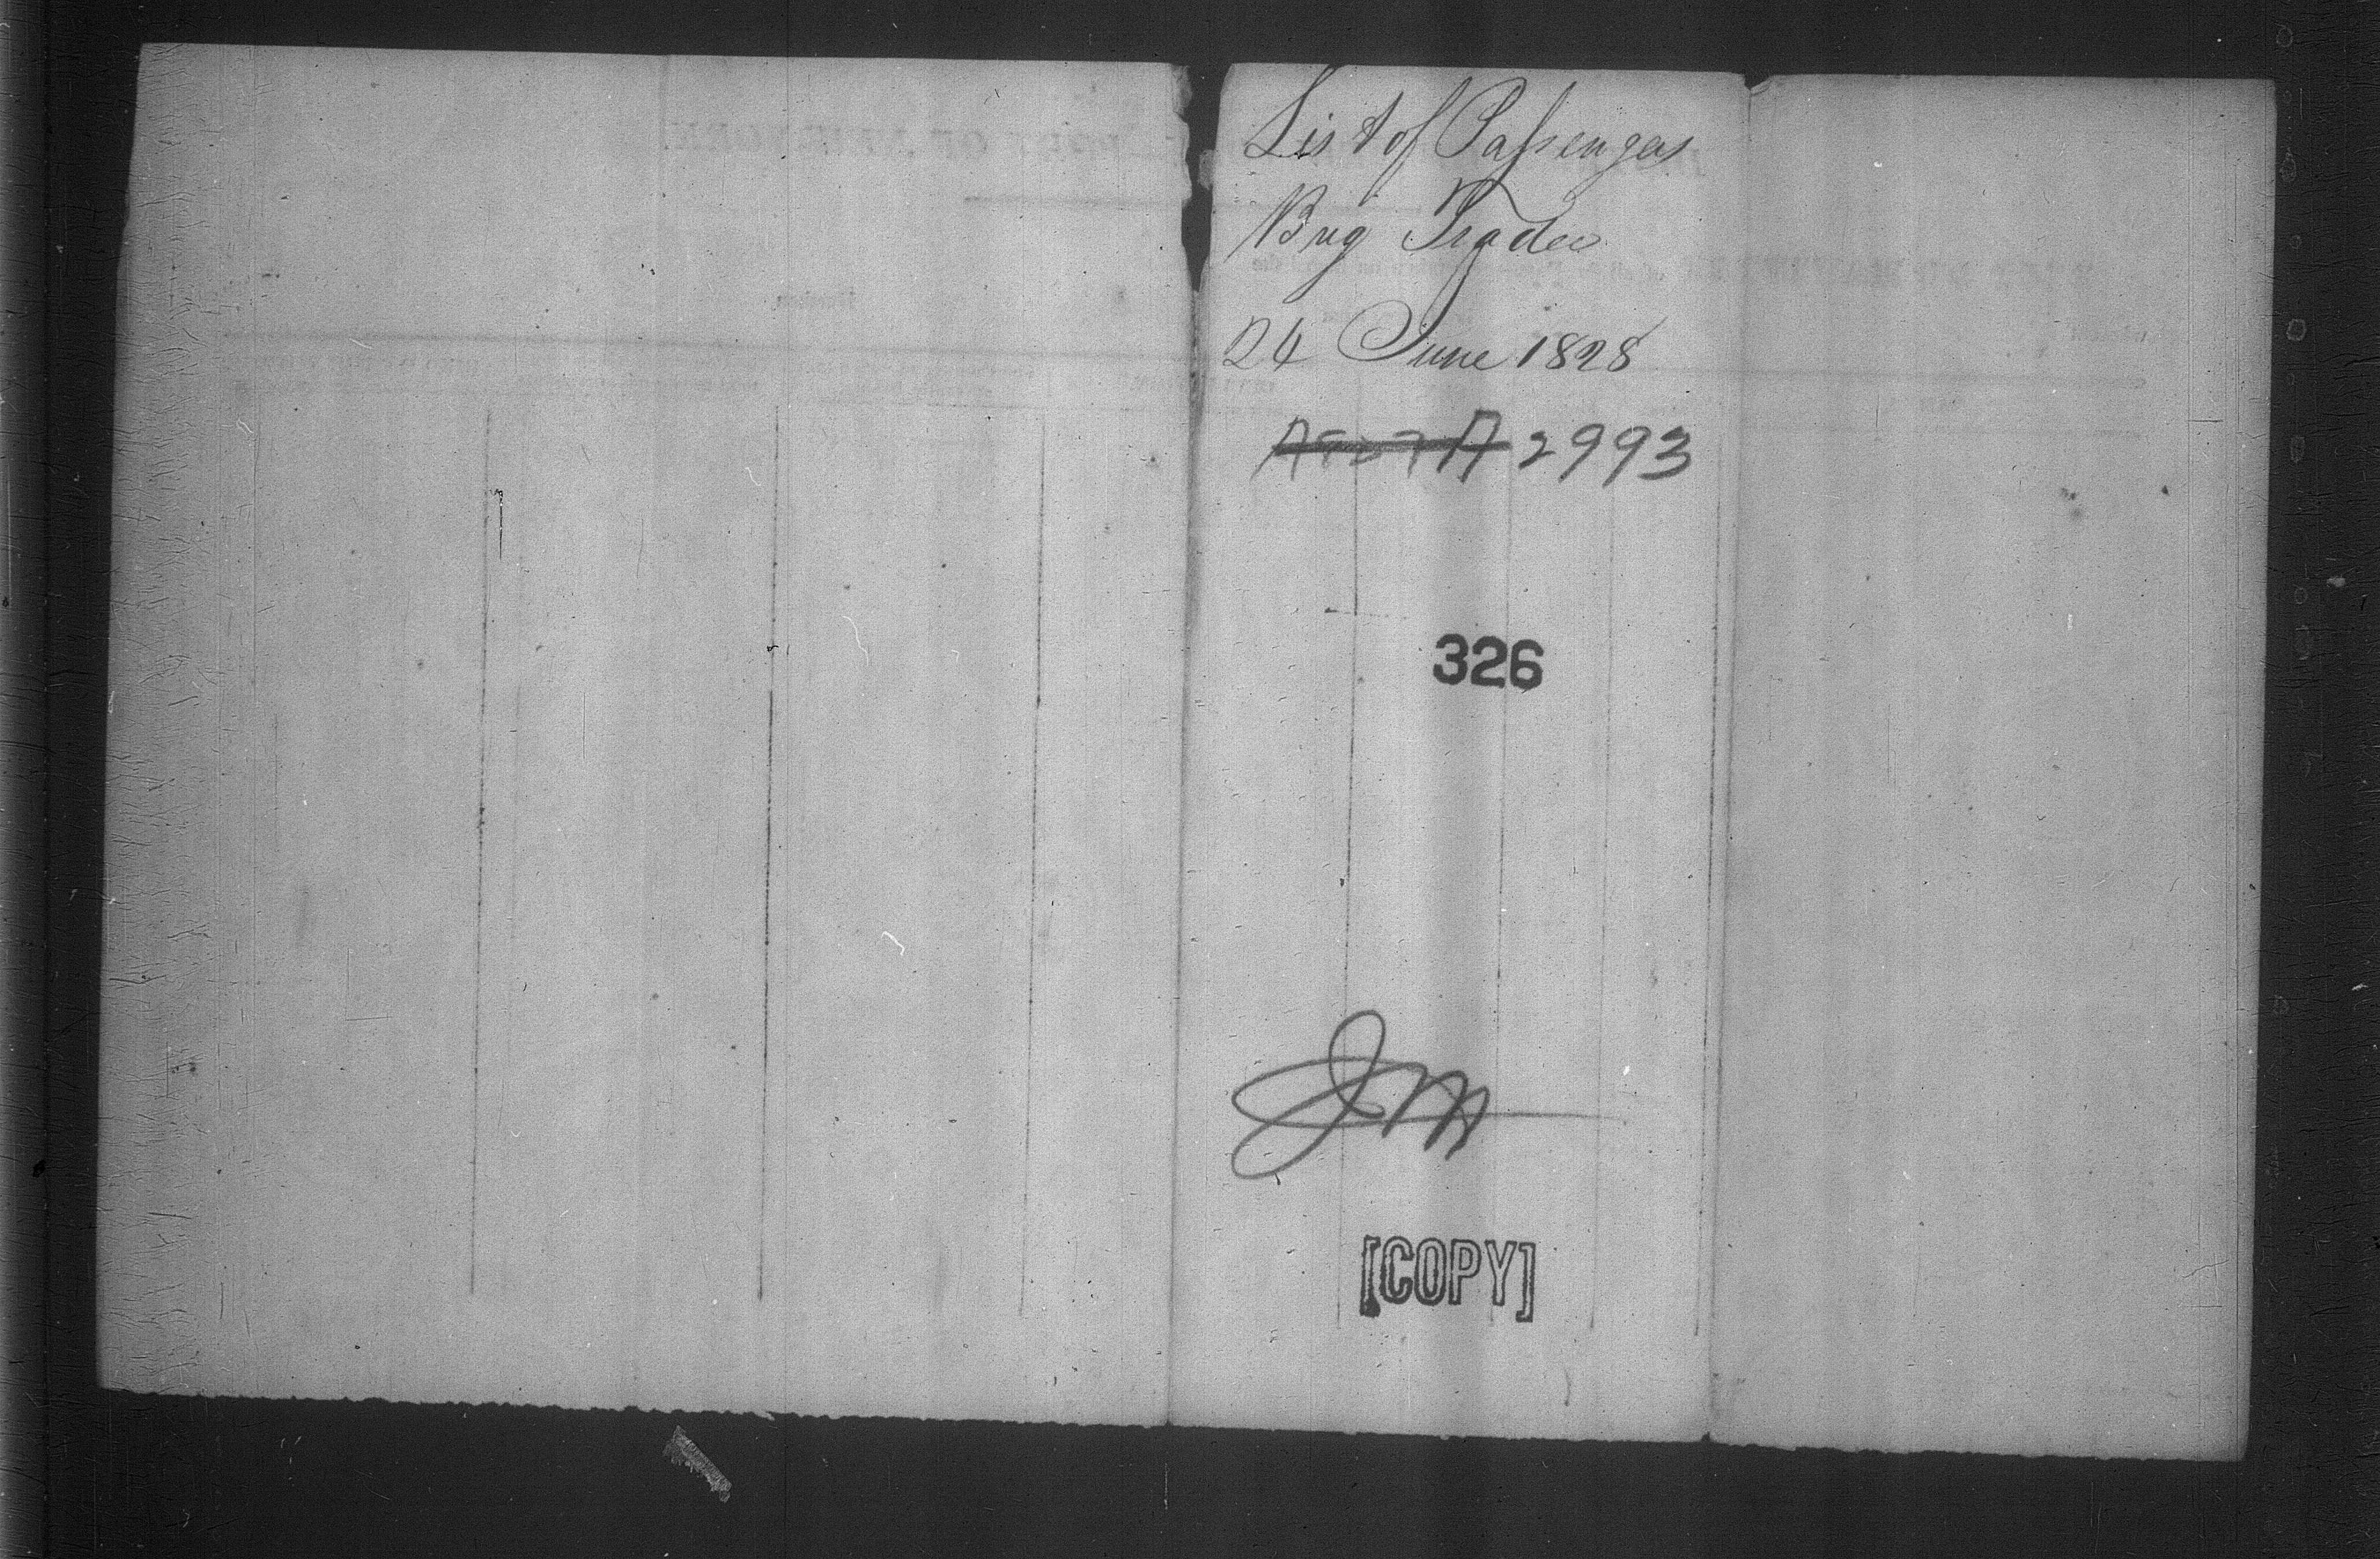 List of Passengers
Brig Trader
24 June 1828
A 2993
326
JM
[COPY]